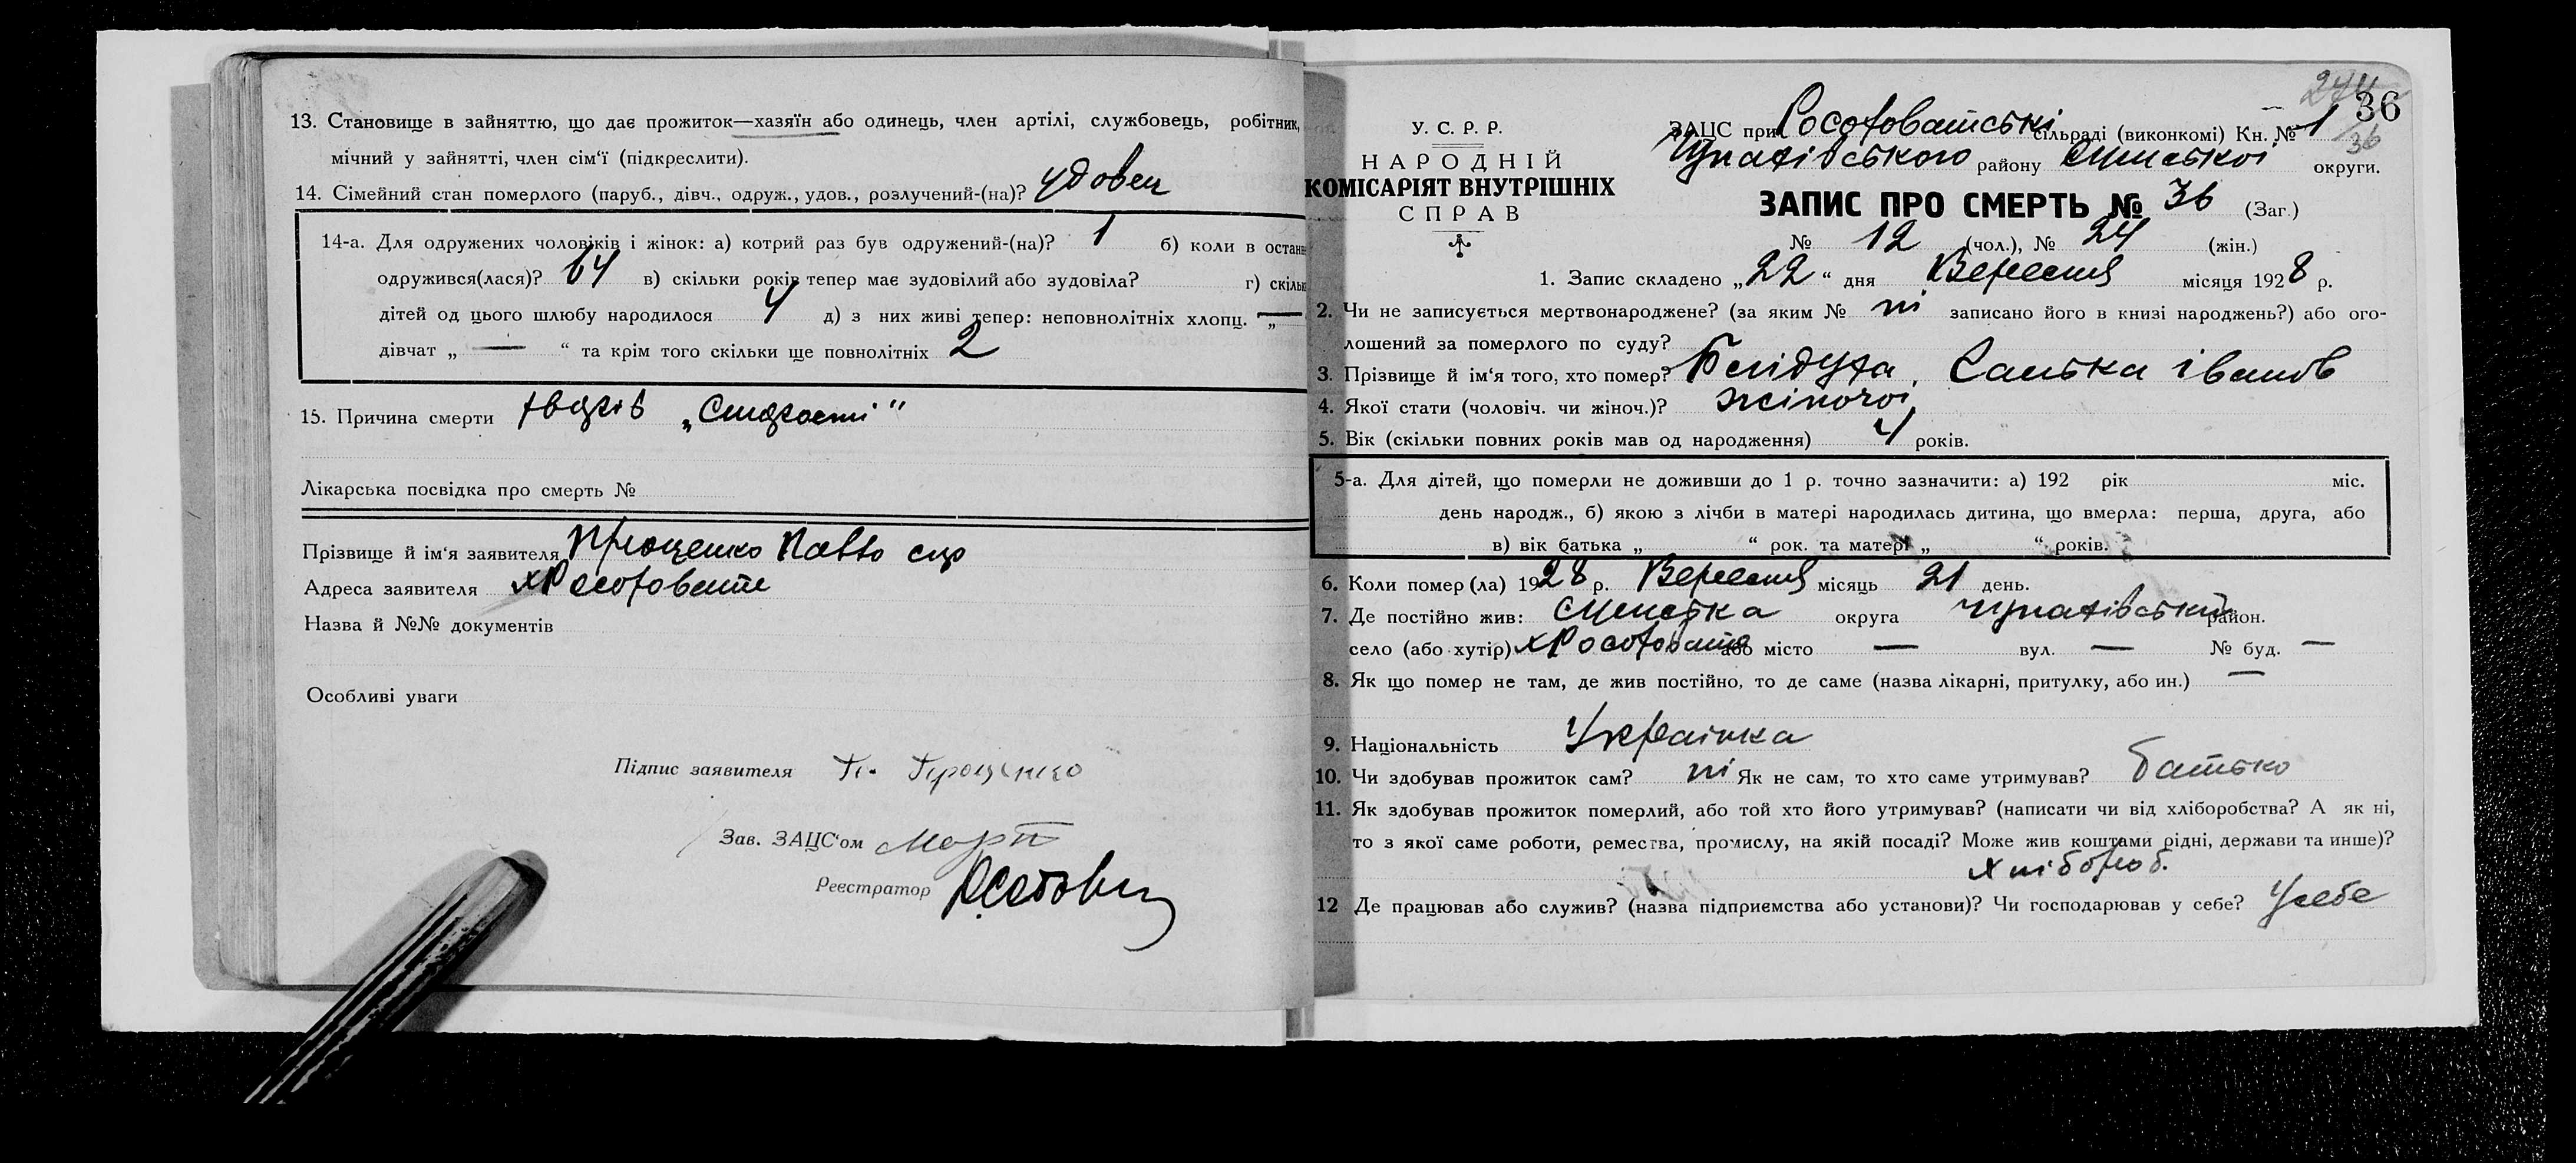 13. Становище в зайняттю, що дає прожиток—хазяїн або одинець, член артілі, службовець, робітник,
мічний у зайнятті, член сім'ї (підкреслити).
14. Сімейний стан померлого (паруб., дівч., одруж., удов., розлучений-(на)? удовец
14-а. Для одружених чоловіків і жінок: а) котрий раз був одружений-(на)? 1 б) коли в остан
одружився(лася)? 64 в) скільки років тепер має зудовілий або зудовіла? г) скільк
дітей од цього шлюбу народилося 4 д) з них живі тепер: неповнолітніх хлопц. „ —
дівчат „ — “ та крім того скільки ще повнолітніх 2
15. Причина смерти
Лікарська посвідка про смерть №
Прізвище й ім'я заявителя Проценко Павло
Адреса заявителя х Росоховате
Назва й №№ документів
Особливі уваги
Підпис заявителя П. Проценко
Зав. ЗАЦС'ом
Реєстратор
36
У. С. Р. Р.
НАРОДНІЙ
КОМІСАРІЯТ ВНУТРІШНІХ
СПРАВ
ЗАЦС при Росоховатські сільраді (виконкомі) Кн. № 1
36
району Сумської округи.
ЗАПИС ПРО СМЕРТЬ № 36 (Заг.)
№ 12 (чол.), № 24 (жін.)
1. Запис складено „22“ дня Вересня місяця 1928 р.
2. Чи не записується мертвонароджене? (за яким № ні записано його в книзі народжень?) або ого-
лошений за померлого по суду?
3. Прізвище й ім'я того, хто помер? Санька Іванов
4. Якої стати (чоловіч. чи жіноч.)? жіночої
5. Вік (скільки повних років мав од народження) 4 років.
5-а. Для дітей, що померли не доживши до 1 р. точно зазначити: а) 192 рік міс.
день народж., б) якою з лічби в матері народилась дитина, що вмерла: перша, друга, або
в) вік батька „ “ рок. та матері „ “ років.
6. Коли помер (ла) 1928 р. Вересня місяць 21 день.
7. Де постійно жив: Сумська округа район.
село (або хутір) х Росоховате або місто — вул. — № буд. —
8. Як що помер не там, де жив постійно, то де саме (назва лікарні, притулку, або ин.) —
9. Національність Українка
10. Чи здобував прожиток сам? ні Як не сам, то хто саме утримував? батько
11. Як здобував прожиток померлий, або той хто його утримував? (написати чи від хліборобства? А як ні,
то з якої саме роботи, ремества, промислу, на якій посаді? Може жив коштами рідні, держави та инше)?
хлібороб.
12 Де працював або служив? (назва підприємства або установи)? Чи господарював у себе? У себе